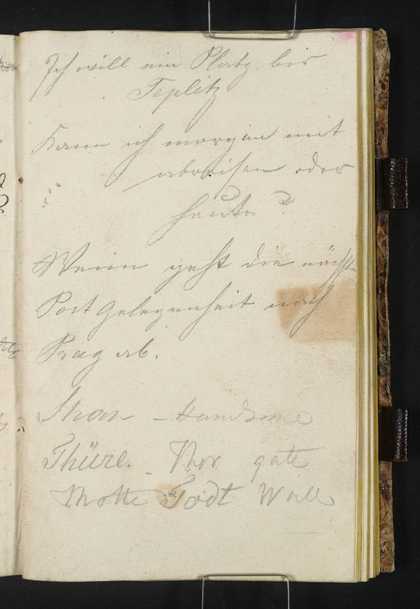 Ich will ein Platz bis
Teplitz
Kann ich morgen mit
abreisen oder
heute?
Wenn geht die nächste
Post gelegenheit nach
Prag ab.
handsome
Thüre. Thor gate
Motte Wall